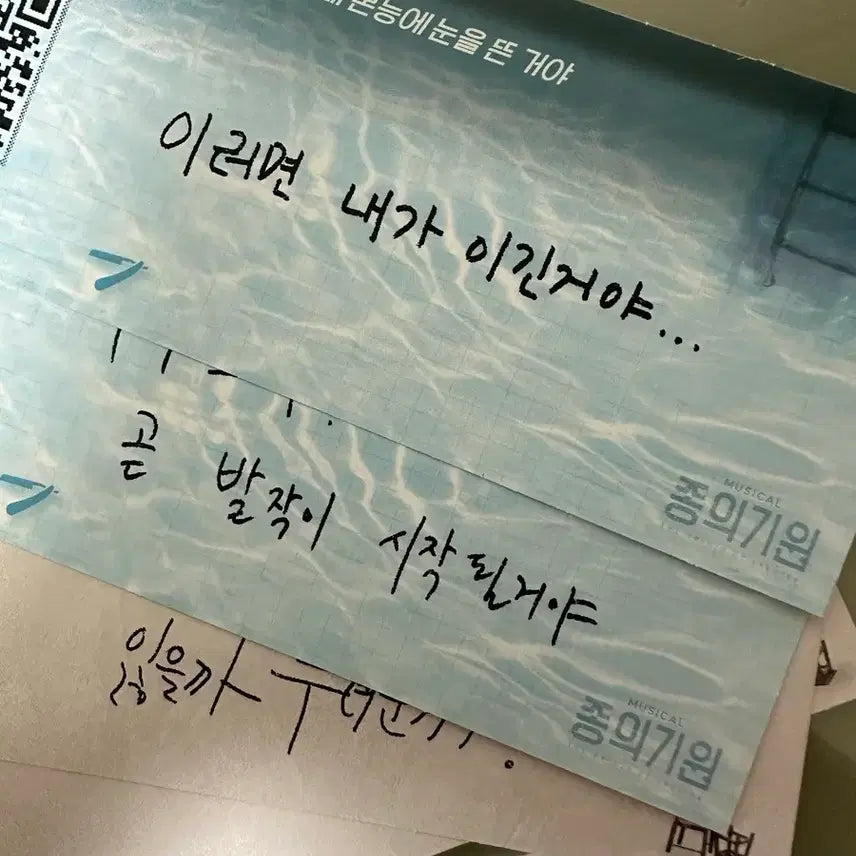 본능에 눈을 뜬 거야
이러면 내가 이긴거야...
MUSICAL
종의기원
곧 발작이 시작될거야
MUSICAL
종의기원
있을까